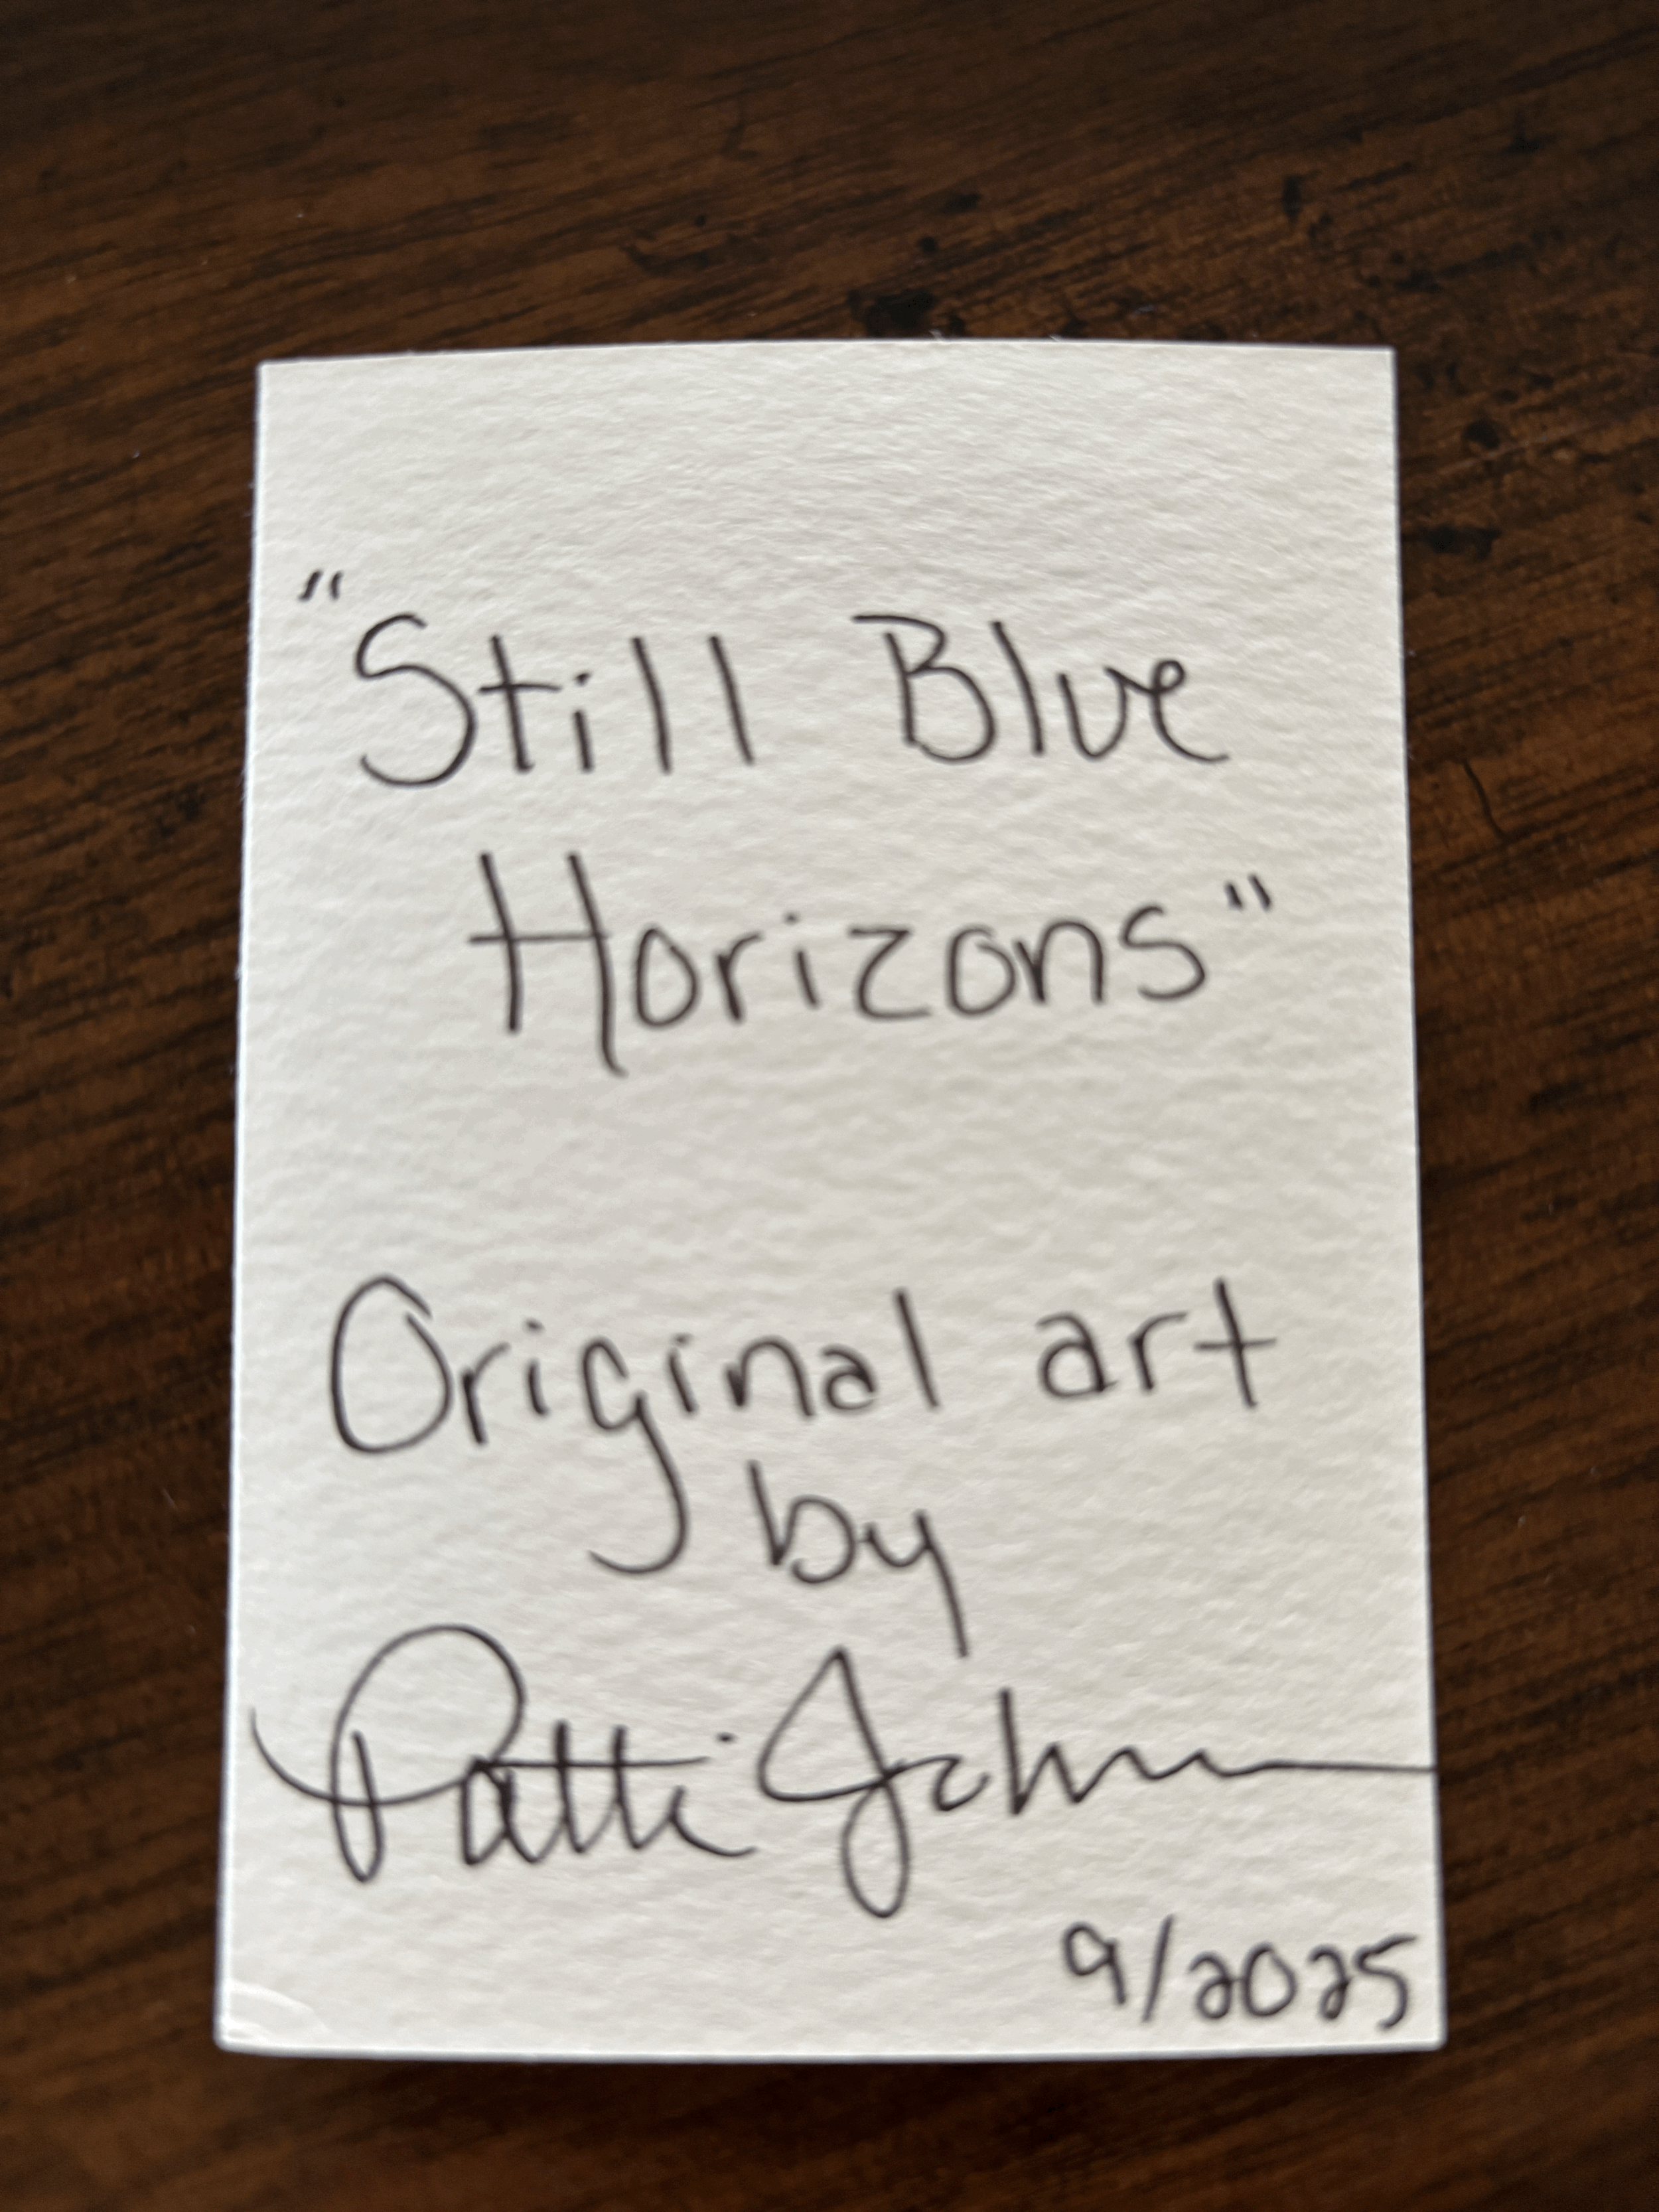 "Still Blue
Horizons"
Original art
by
Patti
9/2025